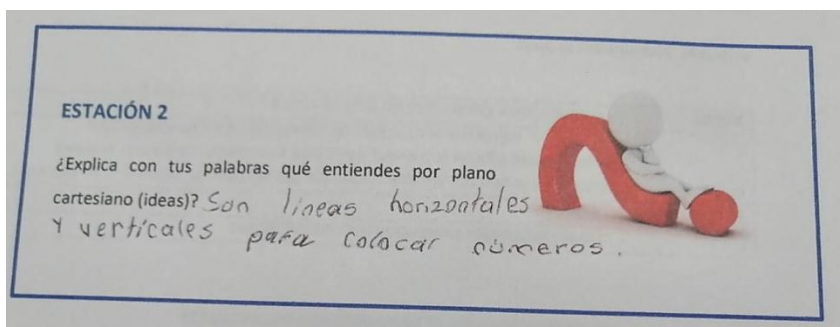 ESTACIÓN 2
¿Explica con tus palabras qué entiendes por plano
cartesiano (ideas)? Son líneas horizontales
Y verticales para colocar números.